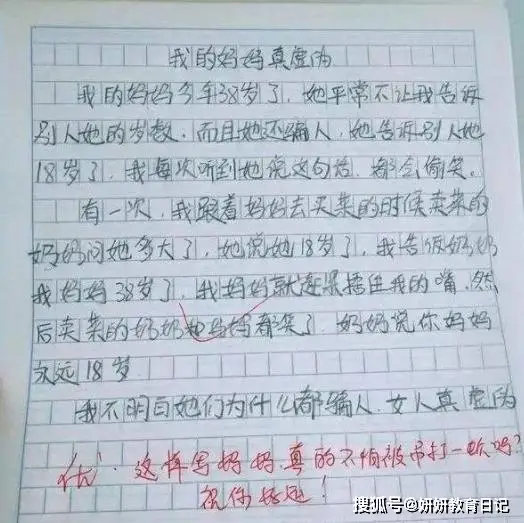 我的妈妈真虚伪
我的妈妈今年38岁了,她平常不让我告诉
别人她的岁数.而且她还骗人,她告诉别人她
18岁了,我每次听到她说这句话,都会偷笑。
有一次,我跟着妈妈去买菜的时候卖菜的
奶奶问她多大了,她说她18岁了,我告诉奶奶
我妈妈38岁了,我妈妈就赶紧捂住我的嘴,然
后卖菜的奶奶和妈妈都笑了.奶奶说你妈妈
永远18岁.
我不明白她们为什么都骗人.女人真虚伪
优.这样写妈妈真的不怕被吊打一顿吗?
祝你好运!
搜狐号@妍妍教育日记